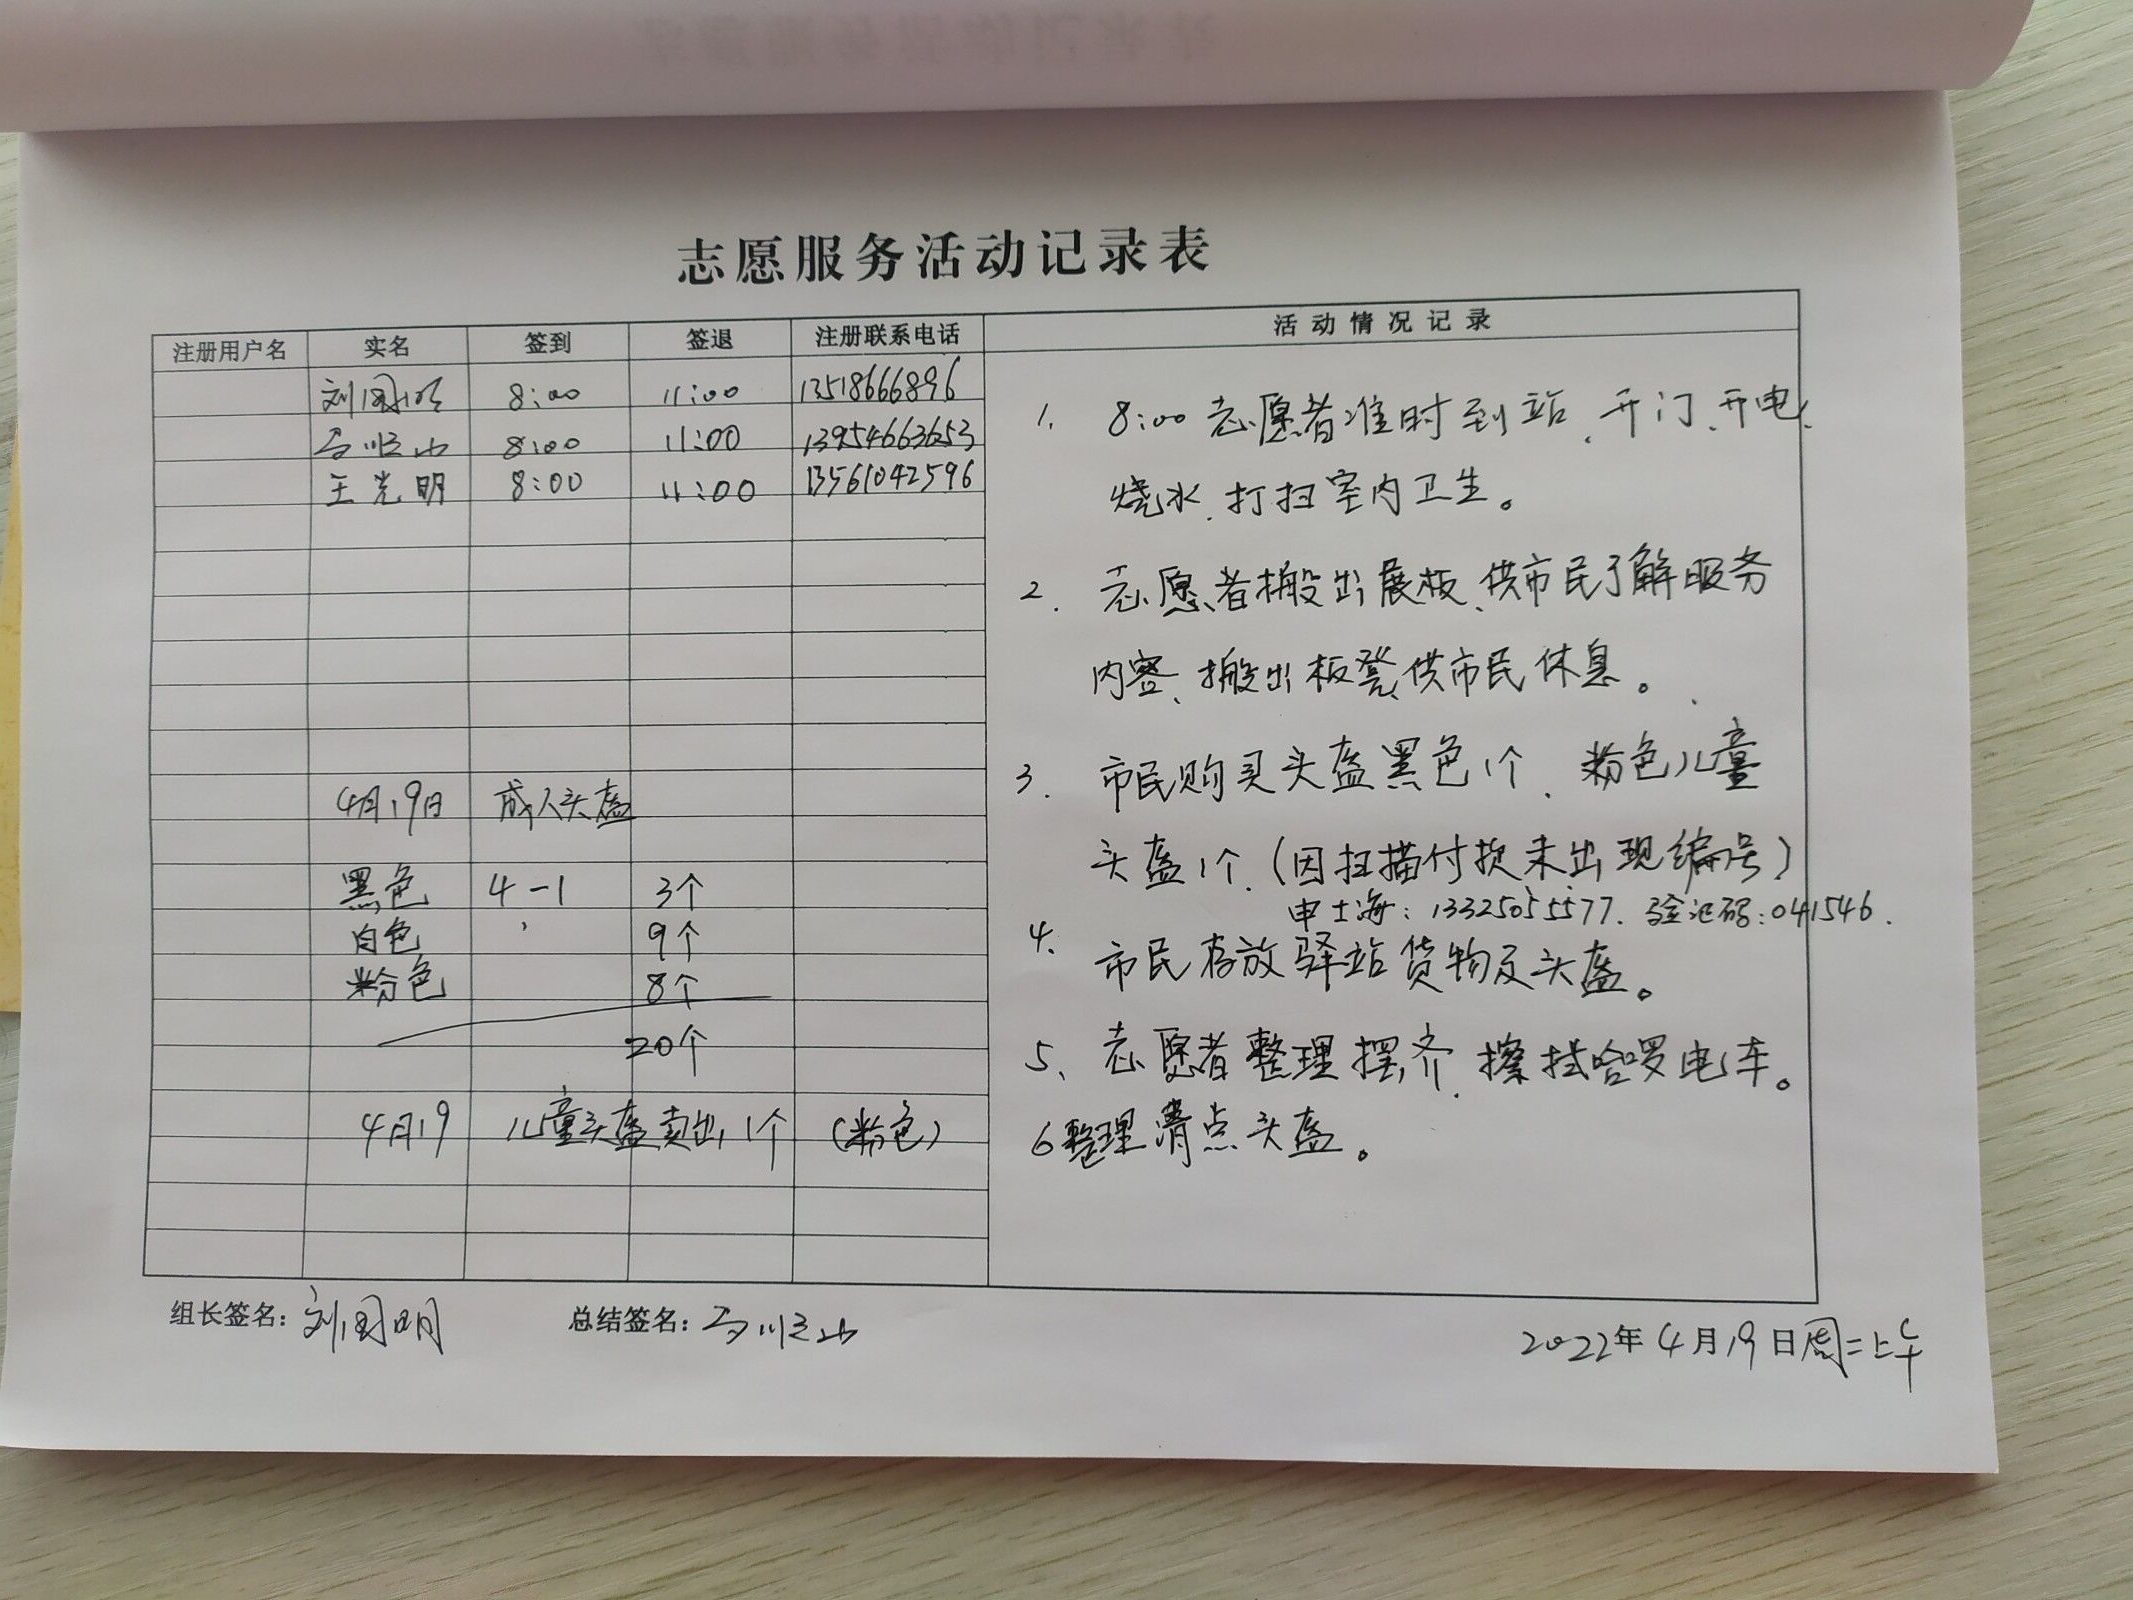 志愿服务活动记录表
注册用户名 实名 签到 签退 注册联系电话 活动情况记录
刘国明 8:00 11:00 13518666896
马顺山 8:00 11:00 13954663653
王光明 8:00 11:00 13561042596
4月19日 成人头盔
黑色 4-1 3个
白色 9个
粉色 8个
20个
4月19 儿童头盔卖出1个 (粉色)
1. 8:00志愿者准时到站、开门、开电、
烧水、打扫室内卫生。
2. 志愿者搬出展板、供市民了解服务
内容、搬出板凳供市民休息。
3. 市民购买头盔黑色1个、粉色儿童
头盔1个、(因扫描付款未出现编号)
申士海:13325055577. 验证码:041546.
4. 市民存放驿站货物及头盔。
5、志愿者整理摆齐、擦拭哈啰电车。
6整理清点头盔。
组长签名:刘国明 总结签名:马顺山
2022年4月19日周二上午